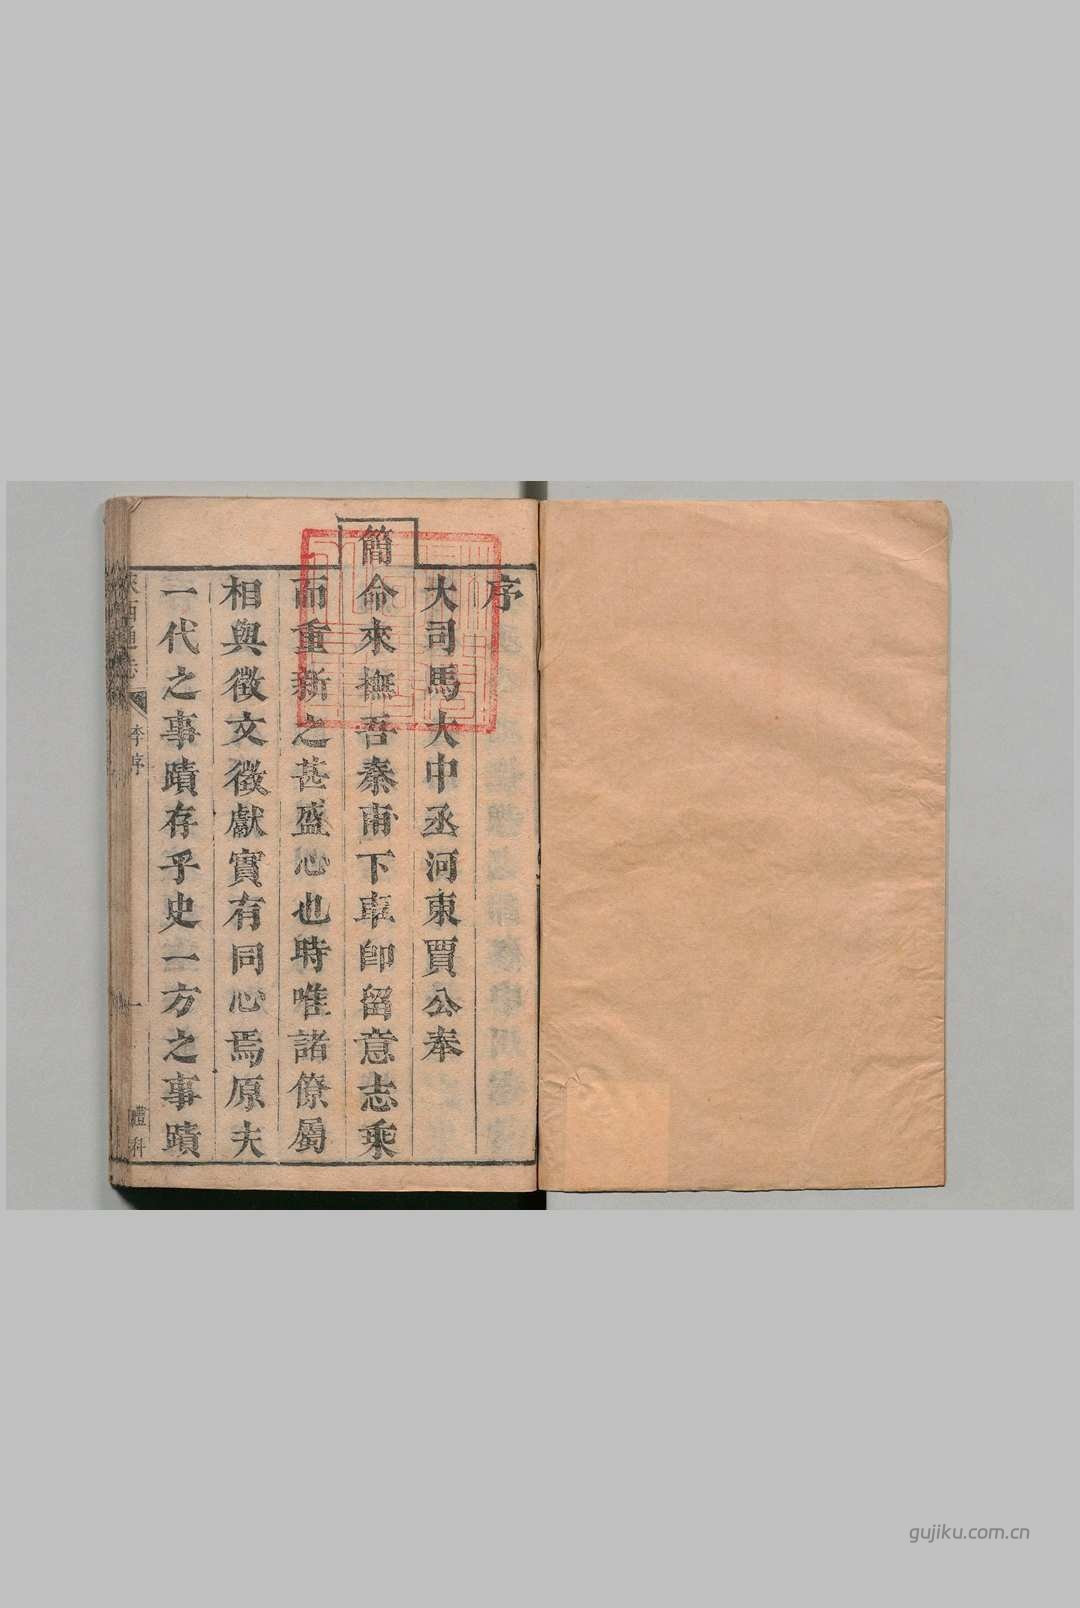 序
大司馬大中丞河東賈公奉
簡命來撫吾秦甫下車卽留意志乘
而重新之甚盛心也時唯諸僚屬
相與徵文徵獻實有同心焉原夫
一代之事蹟存乎史一方之事蹟
陝西通志 李序 一 禮科
gujiku.com.cn